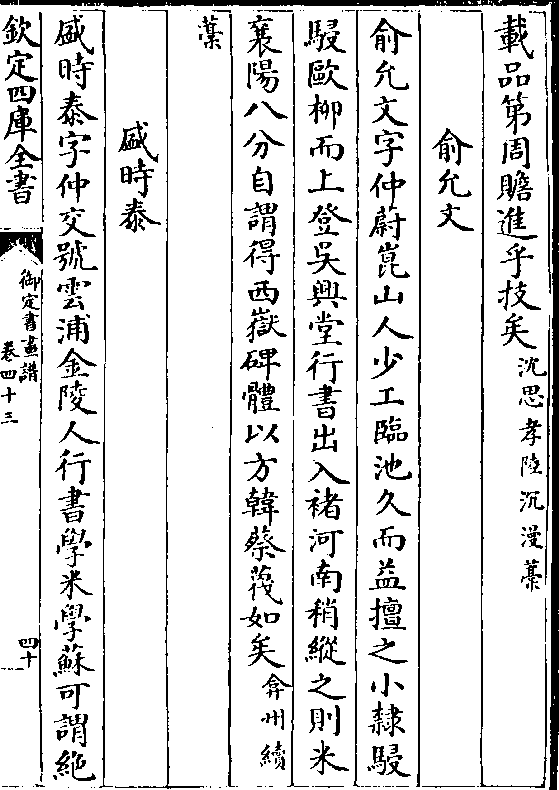 載品第周贍進乎技矣沈思孝陸沉漫藁
俞允文
俞允文字仲蔚崑山人少工臨池久而益擅之小隸駸
駸歐柳而上登吳興堂行書出入褚河南稍縱之則米
襄陽八分自謂得西嶽碑體以方韓蔡蔑如矣弇州續
藁
盛時泰
盛時泰字仲交號雲浦金陵人行書學米學蘇可謂絶
欽定四庫全書
御定書畫譜
卷四十三
四十